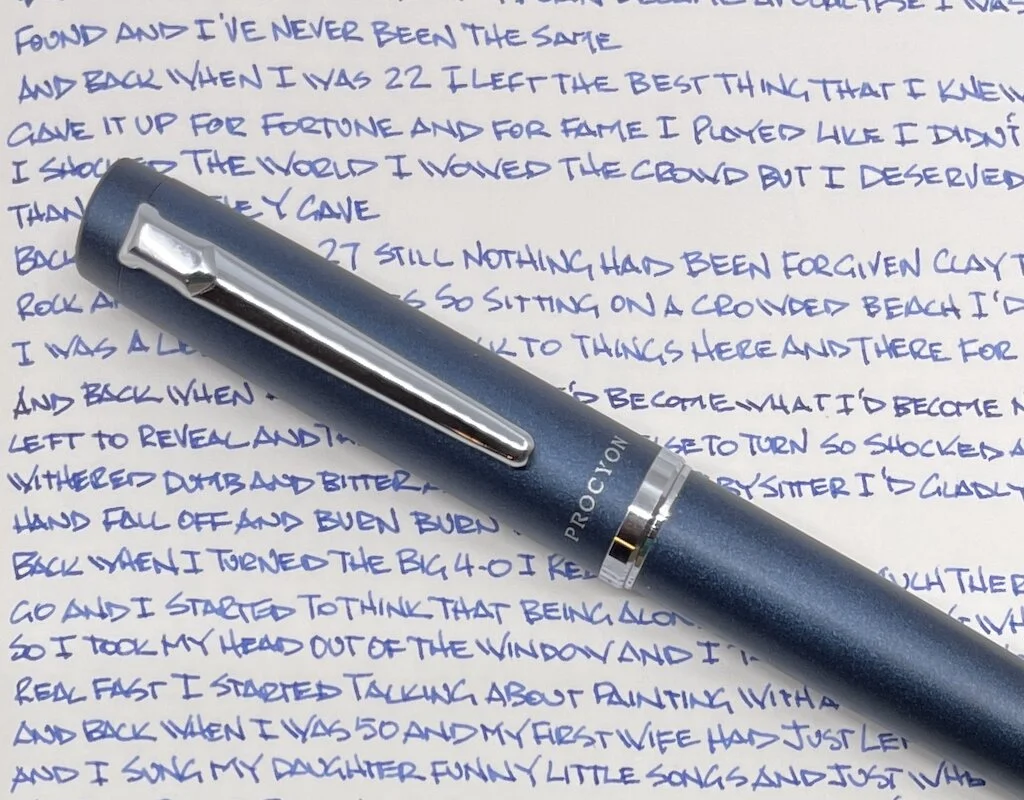 I WAS
FOUND AND I'VE NEVER BEEN THE SAME
AND BACK WHEN I WAS 22 I LEFT THE BEST THING THAT I KNEW
GAVE IT UP FOR FORTUNE AND FOR FAME I PLAYED LIKE I DIDN'T
I SHOCKED THE WORLD I WOWED THE CROWD BUT I DESERVED
THAN THEY GAVE
BACK 27 STILL NOTHING HAD BEEN FORGIVEN CLAY
ROCK SO SITTING ON A CROWDED BEACH I'D
I WAS A TO THINGS HERE AND THERE FOR
AND BACK WHEN BECOME WHAT I'D BECOME
LEFT TO REVEAL AND TO TURN SO SHOCKED
WITHERED DUMB AND BITTER BYSITTER I'D GLADLY
HAND FALL OFF AND BURN BURN
BACK WHEN I TURNED THE BIG 4-0 I
GO AND I STARTED TO THINK THAT BEING
SO I TOOK MY HEAD OUT OF THE WINDOW AND I
REAL FAST I STARTED TALKING ABOUT PAINTING WITH A
AND BACK WHEN I WAS 50 AND MY FIRST WIFE HAD JUST
AND I SUNG MY DAUGHTER FUNNY LITTLE SONGS AND JUST
PROCYON